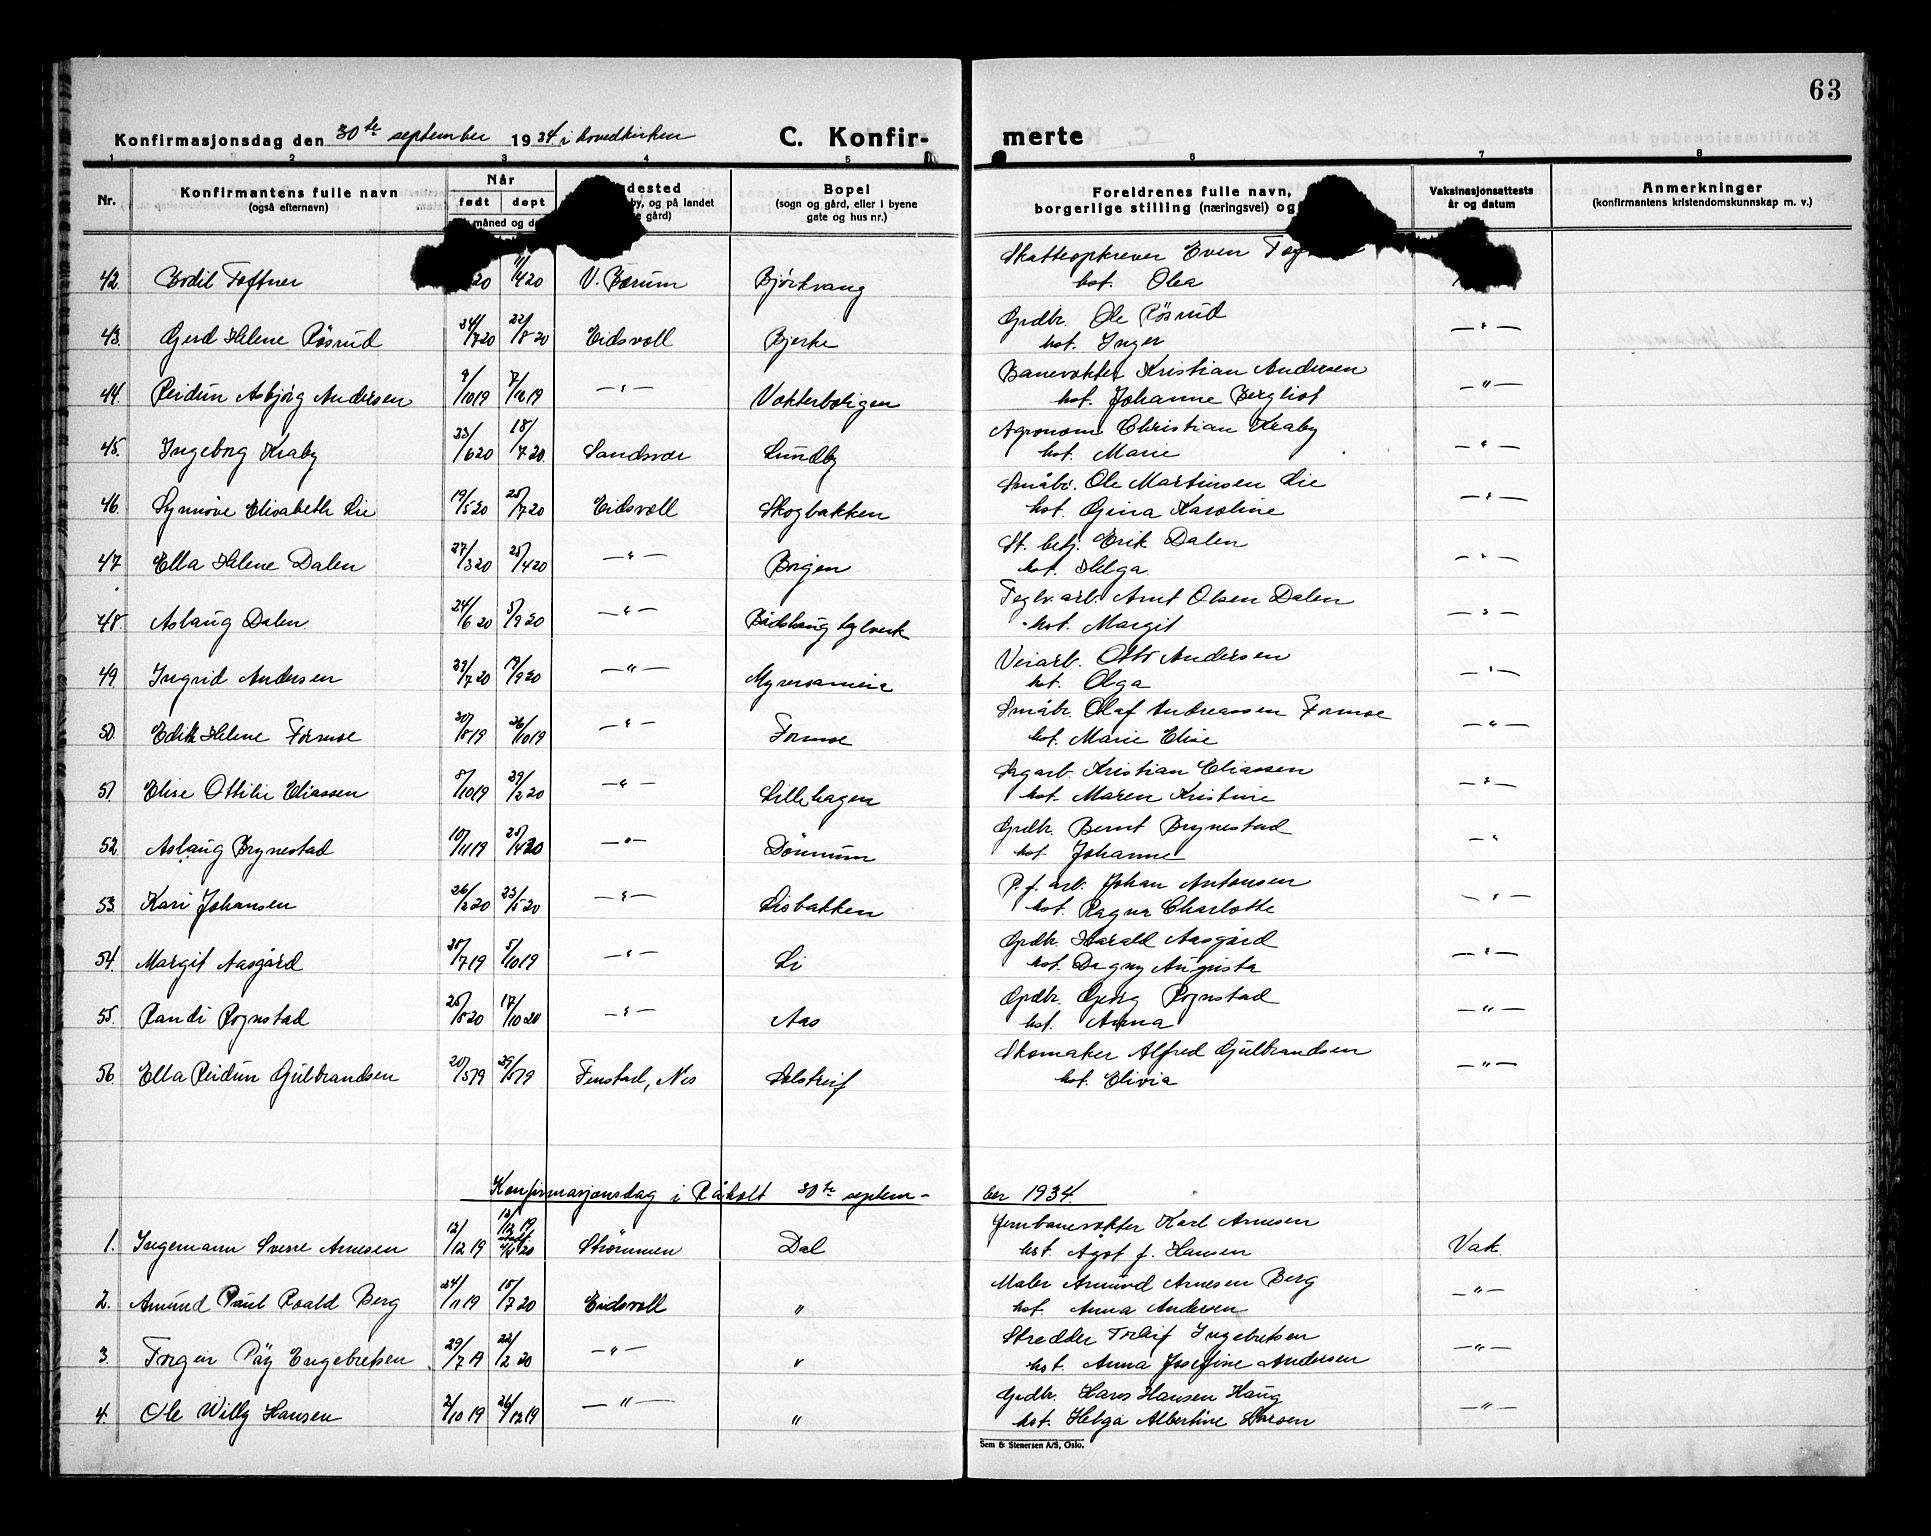 63
Konfirmasjonsdag den 30te september 1934 i hovedkirken C. Konfir- merte
1 2 3 4 5 6 7 8
Nr. Konfirmantens fulle navn (også efternavn) Når født døpt måned og Bopel (sogn og gård, eller i byene gate og hus nr.) Foreldrenes fulle navn, borgerlige stilling (næringsvei) og Vaksinasjonsattests år og datum Anmerkninger (konfirmantens kristendomskunnskap m. v.)
Skatteopkrever Even
42. Bodil Toftner 20 11/4 20 V. Bærum Bjørkvang hst. Olea
Grdbr. Ole Røsrud
43. Gerd Helene Røsrud 24/7 20 22/8 20 Eidsvoll Bjerke hst. Inger — " —
Banevokter Kristian Andersen
44. Reidun Asbjørg Andersen 9/10 19 7/12 19 — " — Vokterboligen hst. Johanne Bergliot — " —
Agronom Christian Kraby
45. Ingeborg Kraby 23/6 20 18/7 20 Sandsvær Lundby hst. Marie — " —
Småbr. Ole Martinsen Lie
46. Synnøve Elisabeth Lie 19/5 20 25/7 20 Eidsvoll Skogbakken hst. Gina Karoline — " —
St. betj. Erik Dalen
47. Ella Helene Dalen 27/3 20 25/4 20 — " — Borgen hst. Helga — " —
Teglv. arb. Arnt Olsen Dalen
48. Aslaug Dalen 24/6 20 5/9 20 — " — hst. Margit — " —
Veiarb. Otto Andersen
49. Ingrid Andersen 23/7 20 19/9 20 — " — hst. Olga — " —
Småbr. Olaf Andreassen Formoe
50. Edith Helene Formoe 30/8 19 26/10 19 — " — Formoe hst. Marie Elise — " —
Sagarb. Kristian Eliassen
51. Elise Ottilie Eliassen 8/10 19 29/2 20 — " — Lillehagen hst. Maren Kristine — " —
Grdbr. Bernt Brynestad
52. Aslaug Brynestad 10/11 19 25/4 20 — " — Dønnum hst. Johanne — "
P. f. arb. Johan Antonsen
53. Kari Johansen 26/2 20 23/5 20 — " — Lisbakken hst. Ragna Charlotte — " —
Grdbr. Harald Aasgård
54. Margit Aasgård 25/7 19 5/10 19 — " — Li hst. Dagny Augusta — " —
Grdbr. Georg Rognstad
55. Randi Rognstad 25/8 20 17/10 20 — " — Aas hst. Anna — " —
Skomaker Alfred Gulbrandsen
56. Ella Reidun Gulbrandsen 20/5 19 29/ 19 Fenstad, Nes hst. Elivia — " —
Konfirmasjonsdag i Råholt 30te septem- ber 1934.
12/12 19 Jernbanevokter Karl Arnesen
1. Ingemann Sverre Arnesen 12/12 19 4/4 20 Strømmen Dal hst. Agot f. Hansen Vak.
Maler Amund Arnesen Berg
2. Amund Paul Roald Berg 24/11 19 18/7 20 Eidsvoll " hst. Anna Andersen — " —
Skredder Torleif Ingebretsen
3. Torgeir Røy Engebretsen 29/7 19 22/2 20 — " — " hst. Anna Josefine Andersen — " —
Grdbr. Hans Hansen Haug
4. Ole Willy Hansen 2/10 19 26/12 19 — " — " hst. Helga Albertine Larsen — " —
Sem & Stenersen A/S, Oslo.